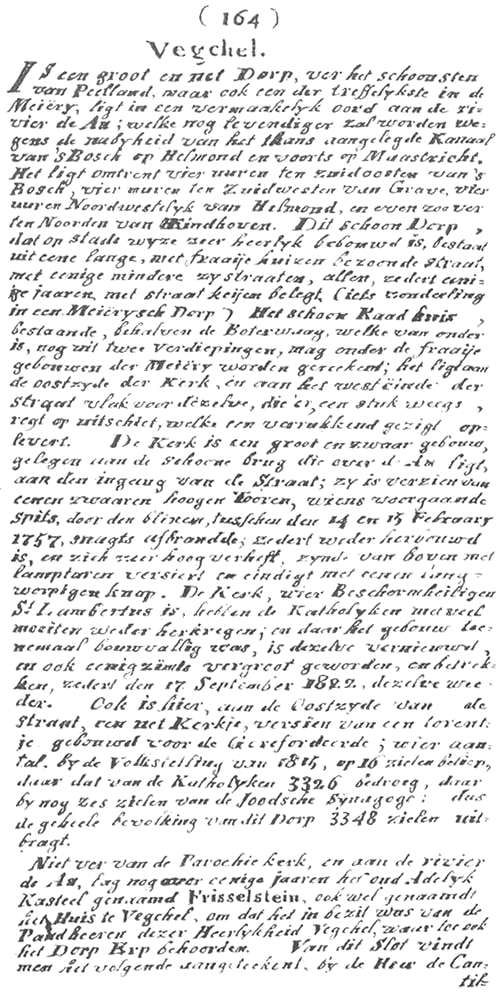 ( 164 )
Vegchel.
Is een groot en net Dorp, ver het schoonsten
van Peelland, maar ook een der treffelykste in de
Meiëry, ligt in een vermaakelyk oord aan de ri-
vier de Aa; welke nog levendiger zal worden we-
gens de nabyheid van het thans aangelegde Kanaal
van 's Bosch op Helmond en voorts op Maastricht.
Het ligt omtrent vier uuren ten zuidoosten van 's
Bosch, vier uuren ten Zuidwesten van Grave, vier
uuren Noordwestelyk van Helmond, en even zoo ver
ten Noorden van Eindhoven. Dit schoon Dorp,
dat op stads wyze zeer heerlyk bebouwd is, bestaat
uit eene lange, met fraaije huizen bezoonde straat,
met eenige mindere zystraaten, allen, zedert eeni-
ge jaaren met straat keijen belegt, (iets zonderling
in een Meiërysch Dorp) Het schoon Raad huis,
bestaande, behalven de Boterwaag, welke van onder
is, nog uit twee verdiepingen, mag onder de fraaije
gebouwen der Meiëry worden gerekent; het ligt aan
de oostzyde der Kerk, en aan het westëinde der
straat vlak voor dezelve, die 'er, een stuk weegs,
regt op uitschiet, welke een verrukkend gezigt op-
levert. De Kerk is een groot en zwaar gebouw,
gelegen aan de schoone brug die over d' Aa ligt,
aan den ingang van de Straat; zy is verzien van
eenen zwaaren hoogen Tooren, wiens voorgaande
spits, door den blixem, tusschen den 14 en 15 February
1757, snagts afbrandde; zedert weder herbouwd
is, en zich zeer hoog verheft, zynde van boven met
lanptaren versiert en eindigt met eenen lang-
worpigen knop. De Kerk, wier Beschermheiligen
St Lambertus is, hebben de Katholyken met veel
moeiten weder herkregen; en daar het gebouw t'ee-
nemaal bouwvallig was, is dezelve vernieuwd,
en ook eenigzints vergroot geworden, en betrek-
ken, zedert den 17 September 1822, dezelve wee-
der. Ook is hier, aan de Oostzyde van de
straat, een net Kerkje, verzien van een torent-
je gebouwd voor de Gereformeerde; wier aan-
tal, by de Volkstelling van 1815, op 16 zielen beliep,
daar dat van de Katholyken 3326 bedroeg, daar
by nog zes zielen van de Joodsche Synagoge: dus
de geheele bevolking van dit Dorp 3348 zielen uit-
bragt.
Niet ver van de Parochie kerk, en aan de rivier
de Aa, lag nog voor eenige jaaren het oud Adelyk
Kasteel genaamd Frisselstein, ook wel genaamdt
het Huis te Vegchel, om dat het in bezit was van de
Pandheeren dezer Heerlykheid Vegchel, waar toe ook
het Dorp Erp behoorden. Van dit Slot vindt
men het volgende aangeteekent, by de Heer de Can-
til-